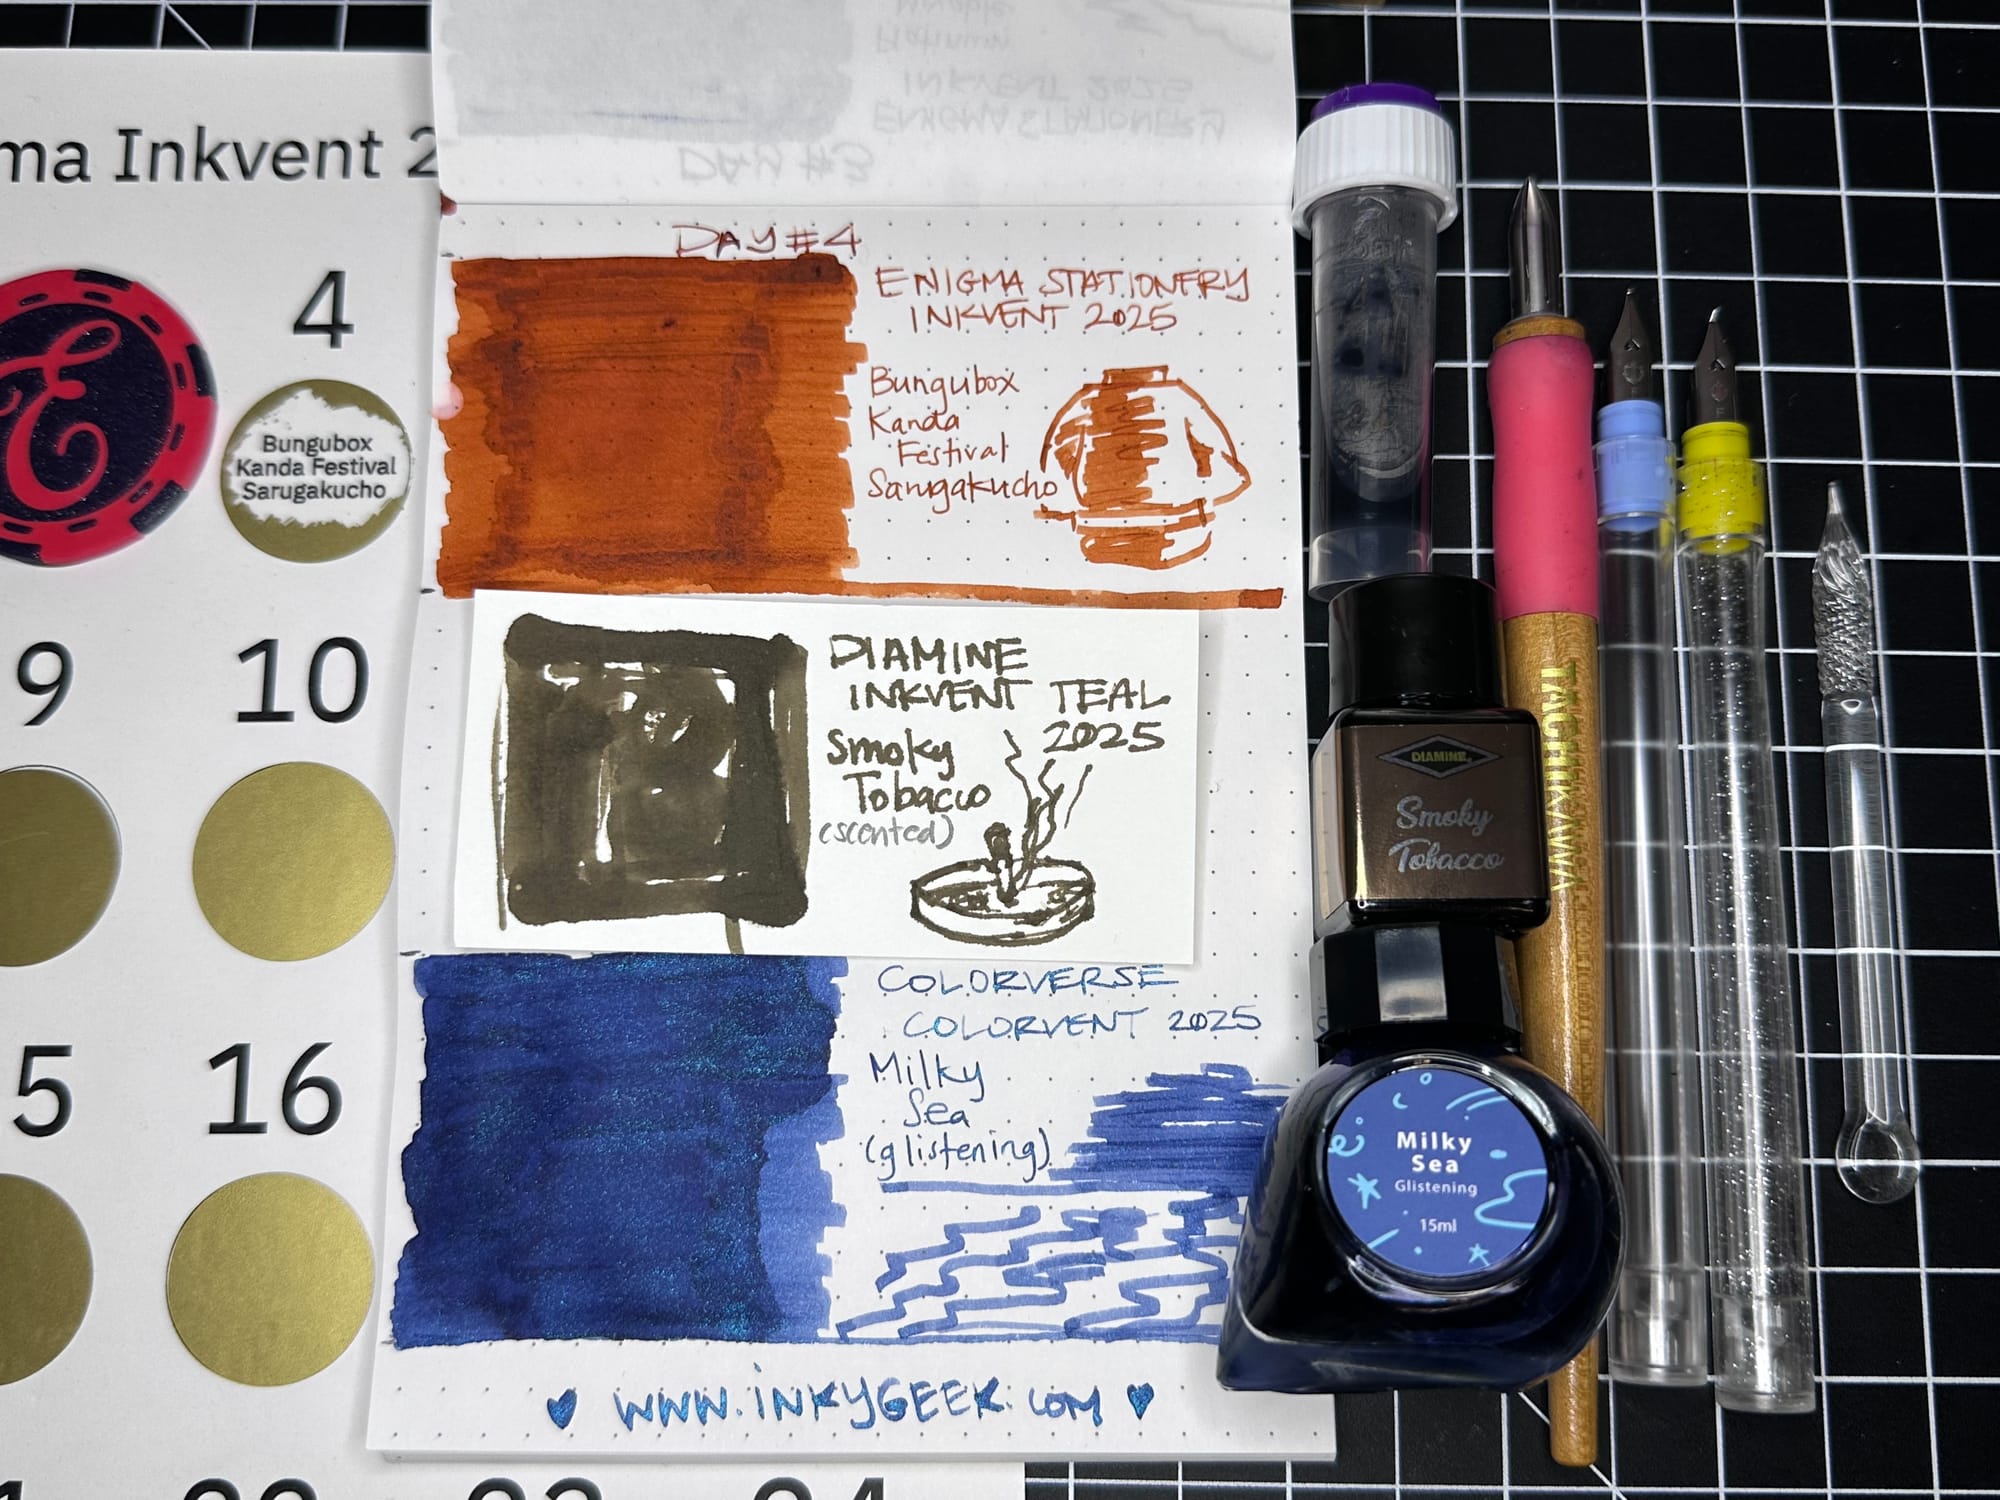 ma Inkvent 2
4
Bungubox
Kanda Festival
Sarugakucho
E
9
10
5
16
DAY #3
ENIGMA STATIONERY
INKVENT 2025
Platinum
DAY #4
ENIGMA STATIONERY
INKVENT 2025
Bungubox
Kanda
Festival
Sarugakucho
DIAMINE
INKVENT TEAL
2025
Smoky
Tobacco
(scented)
COLORVERSE
COLORVENT 2025
Milky
Sea
(glistening)
♥ WWW.INKYGEEK.COM ♥
DIAMINE
Smoky
Tobacco
TACHIKAWA
Milky
Sea
Glistening
15ml